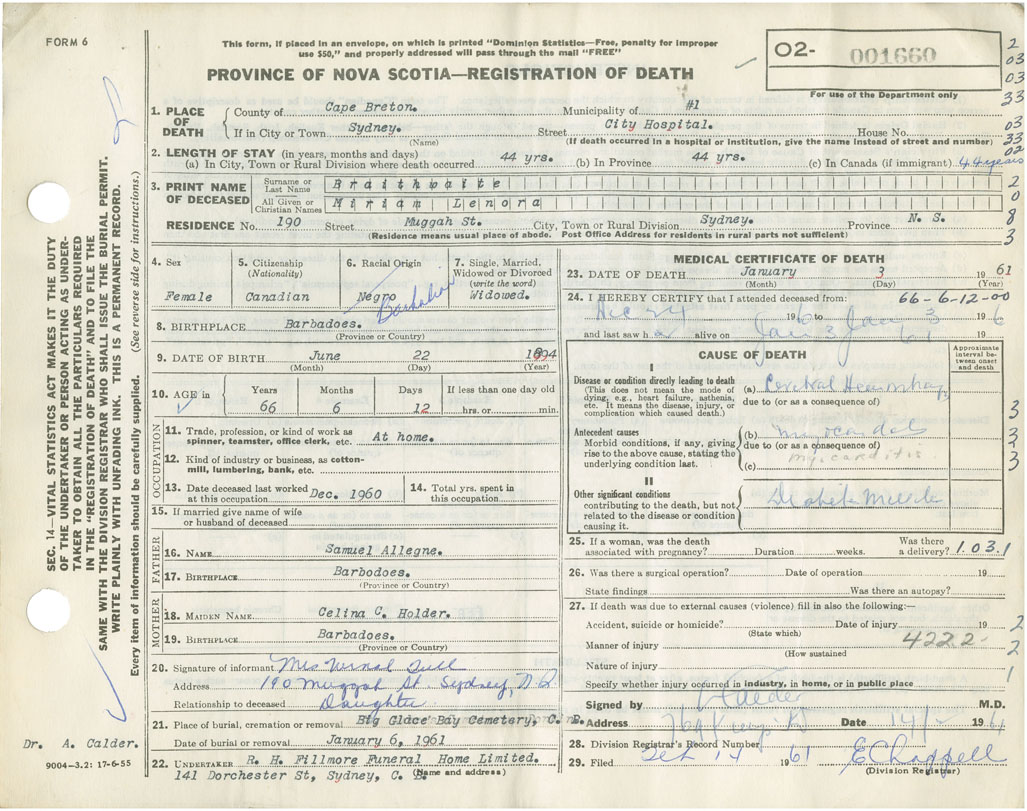 FORM 6
This form, if placed in an envelope, on which is printed "Dominion Statistics—Free, penalty for improper
use $50," and properly addressed will pass through the mail "FREE"
PROVINCE OF NOVA SCOTIA—REGISTRATION OF DEATH
O2- 001660
For use of the Department only
1. PLACE OF DEATH
County of Cape Breton. Municipality of #1
If in City or Town Sydney. Street City Hospital. House No.
(Name) (If death occurred in a hospital or institution, give the name instead of street and number)
2. LENGTH OF STAY (in years, months and days)
(a) In City, Town or Rural Division where death occurred 44 yrs. (b) In Province 44 yrs. (c) In Canada (if immigrant) 44 years
3. PRINT NAME OF DECEASED
Surname or Last Name Braithwaite
All Given or Christian Names Miriam Lenora
RESIDENCE No. 190 Street Muggah St. City, Town or Rural Division Sydney. Province N. S.
(Residence means usual place of abode. Post Office Address for residents in rural parts not sufficient)
4. Sex
Female
5. Citizenship
(Nationality)
Canadian
6. Racial Origin
Negro
7. Single, Married,
Widowed or Divorced
(write the word)
Widowed.
8. BIRTHPLACE Barbadoes.
(Province or Country)
9. DATE OF BIRTH June 22 1894
(Month) (Day) (Year)
10. AGE in
Years Months Days If less than one day old
66 6 12 hrs. or min.
OCCUPATION
11. Trade, profession or kind of work as
spinner, teamster, office clerk, etc. At home.
12. Kind of industry or business, as cotton-
mill, lumbering, bank, etc.
13. Date deceased last worked
at this occupation Dec. 1960
14. Total yrs. spent in
this occupation
15. If married give name of wife
or husband of deceased
FATHER
16. NAME Samuel Allegne.
17. BIRTHPLACE Barbodoes.
(Province or Country)
MOTHER
18. MAIDEN NAME Celina C. Holder.
19. BIRTHPLACE Barbadoes.
(Province or Country)
20. Signature of informant Mrs
Address 190 Muggah St. Sydney, N.S.
Relationship to deceased Daughter
21. Place of burial, cremation or removal Big Glace Bay Cemetery, C. B.
Date of burial or removal January 6, 1961
22. UNDERTAKER R. H. Fillmore Funeral Home Limited.
141 Dorchester St, Sydney, C. B. (Name and address)
MEDICAL CERTIFICATE OF DEATH
23. DATE OF DEATH January 3 1961
(Month) (Day) (Year)
24. I HEREBY CERTIFY that I attended deceased from: 66-6-12-00
196 to Jan 3 196
and last saw h alive on Jan 3 61 19
CAUSE OF DEATH
Approximate interval between onset and death
I
Disease or condition directly leading to death
(This does not mean the mode of
dying, e.g., heart failure, asthenia,
etc. It means the disease, injury, or
complication which caused death.)
(a) Cerebral
due to (or as a consequence of)
Antecedent causes
Morbid conditions, if any, giving
rise to the above cause, stating the
underlying condition last.
(b)
due to (or as a consequence of)
(c)
II
Other significant conditions
contributing to the death, but not
related to the disease or condition
causing it.
25. If a woman, was the death
associated with pregnancy? Duration weeks. Was there
a delivery? 1.03.1
26. Was there a surgical operation? Date of operation 19
State findings Was there an autopsy?
27. If death was due to external causes (violence) fill in also the following:—
Accident, suicide or homicide? Date of injury 19
(State which)
Manner of injury 4222
(How sustained
Nature of injury
Specify whether injury occurred in industry, in home, or in public place
Signed by M.D.
Address Date 196
28. Division Registrar's Record Number
29. Filed 14 1961 E Chappell
(Division Registrar)
SEC. 14—VITAL STATISTICS ACT MAKES IT THE DUTY
OF THE UNDERTAKER OR PERSON ACTING AS UNDER-
TAKER TO OBTAIN ALL THE PARTICULARS REQUIRED
IN THE "REGISTRATION OF DEATH" AND TO FILE THE
SAME WITH THE DIVISION REGISTRAR WHO SHALL ISSUE THE BURIAL PERMIT.
WRITE PLAINLY WITH UNFADING INK. THIS IS A PERMANENT RECORD.
Every item of information should be carefully supplied. (See reverse side for instructions.)
Dr. A. Calder.
9004–3.2: 17-6-55
2
03
03
33
03
33
02
2
0
8
3
3
3
3
3
2
2
1